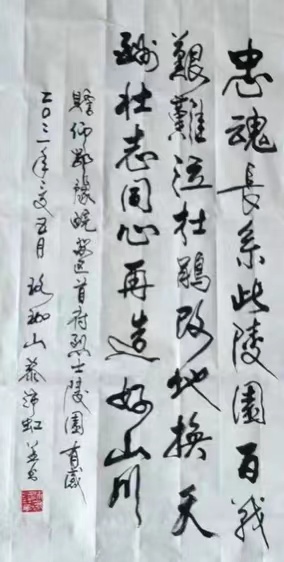 忠魂長系此陵園百戰
艱難泣杜鵑改地換天
酬壯志同心再造好山川
瞻仰鄂豫皖蘇區首府烈士陵園有感
二〇二一年五月珞珈山